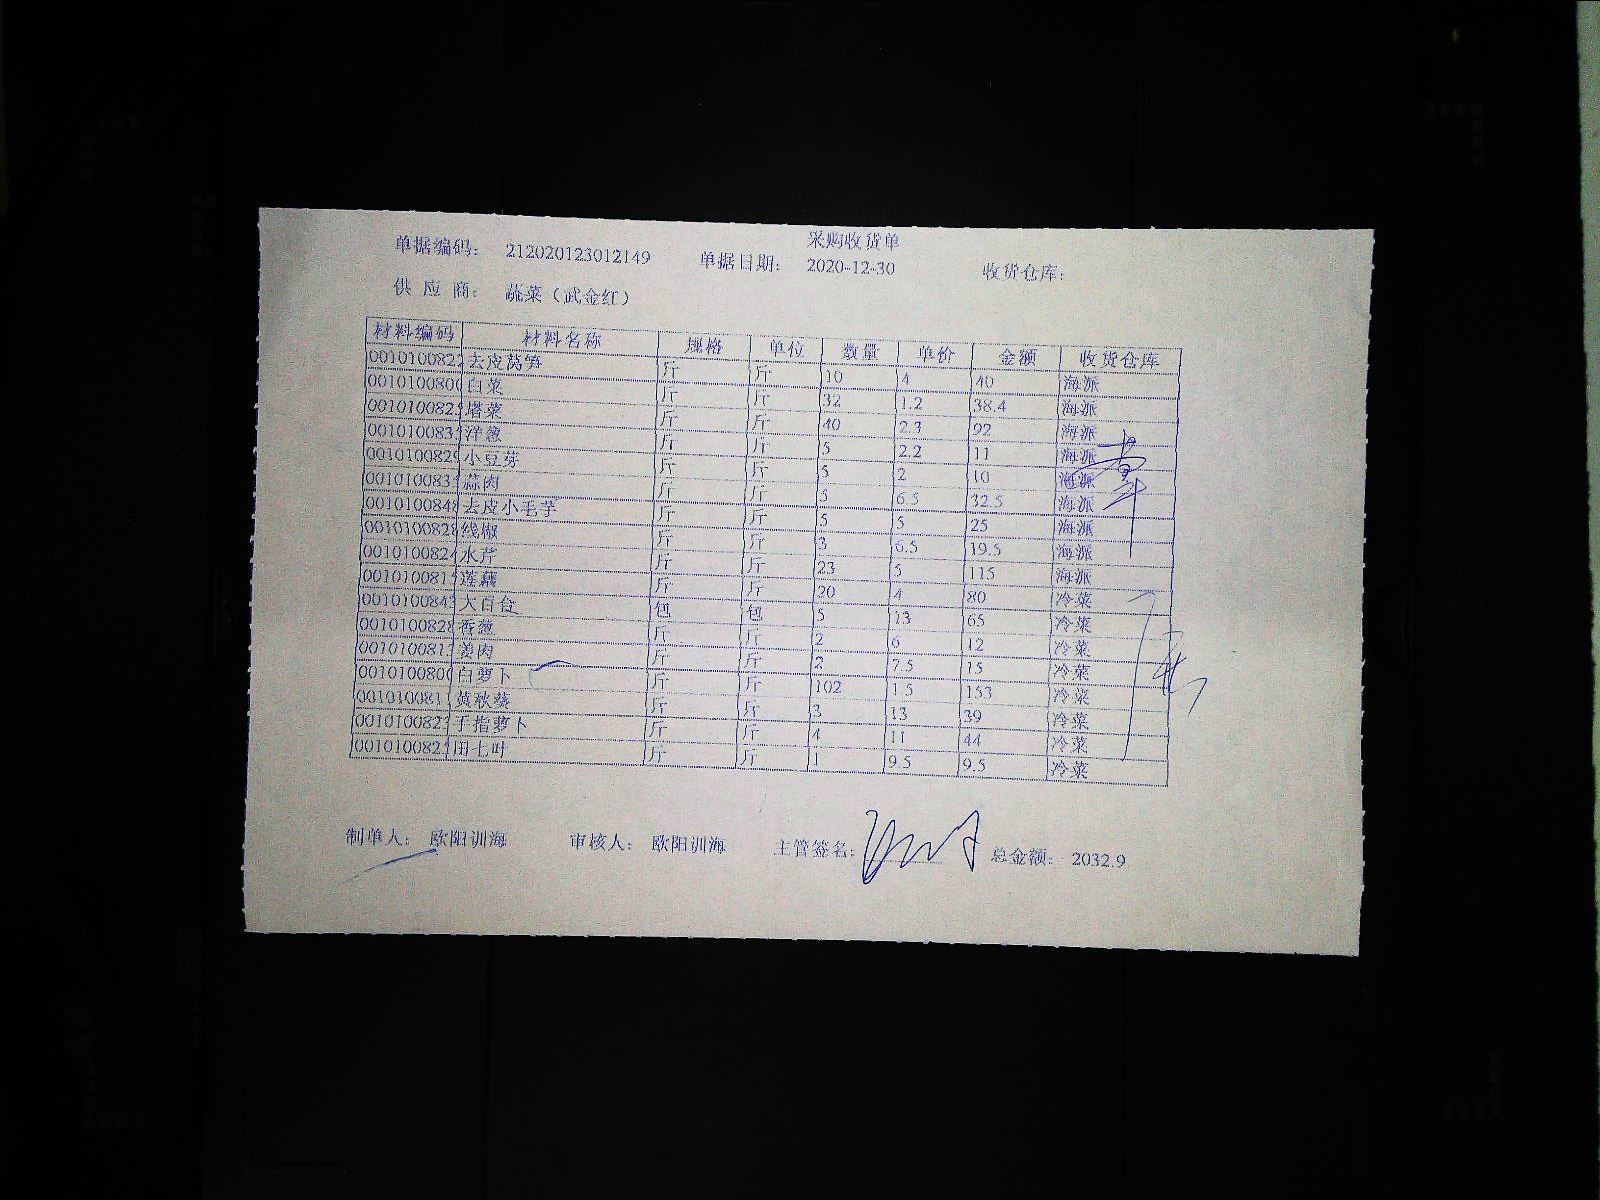 采购收货单
单据编码： 212020123012149 单据日期： 2020-12-30 收货仓库：
供 应 商： 蔬菜（武金红）
材料编码 材料名称 规格 单位 数量 单价 金额 收货仓库
0010100822 去皮莴笋 斤 斤 10 4 40 海派
001010080 白菜 斤 斤 32 1.2 38.4 海派
001010082 塔菜 斤 斤 40 2.3 92 海派
001010083 洋葱 斤 斤 5 2.2 11 海派
001010082 小豆芽 斤 斤 5 2 10 海派
001010083 蒜肉 斤 斤 5 6.5 32.5 海派
001010084 去皮小毛芋 斤 斤 5 5 25 海派
001010082 线椒 斤 斤 3 6.5 19.5 海派
001010082 水芹 斤 斤 23 5 115 海派
001010081 莲藕 斤 斤 20 4 80 冷菜
001010084 大百合 包 包 5 13 65 冷菜
001010082 香葱 斤 斤 2 6 12 冷菜
001010081 姜肉 斤 斤 2 7.5 15 冷菜
001010080 白萝卜 斤 斤 102 1.5 153 冷菜
001010081 黄秋葵 斤 斤 3 13 39 冷菜
001010082 手指萝卜 斤 斤 4 11 44 冷菜
001010082 田七叶 斤 斤 1 9.5 9.5 冷菜
制单人： 欧阳训海 审核人： 欧阳训海 主管签名： 总金额： 2032.9